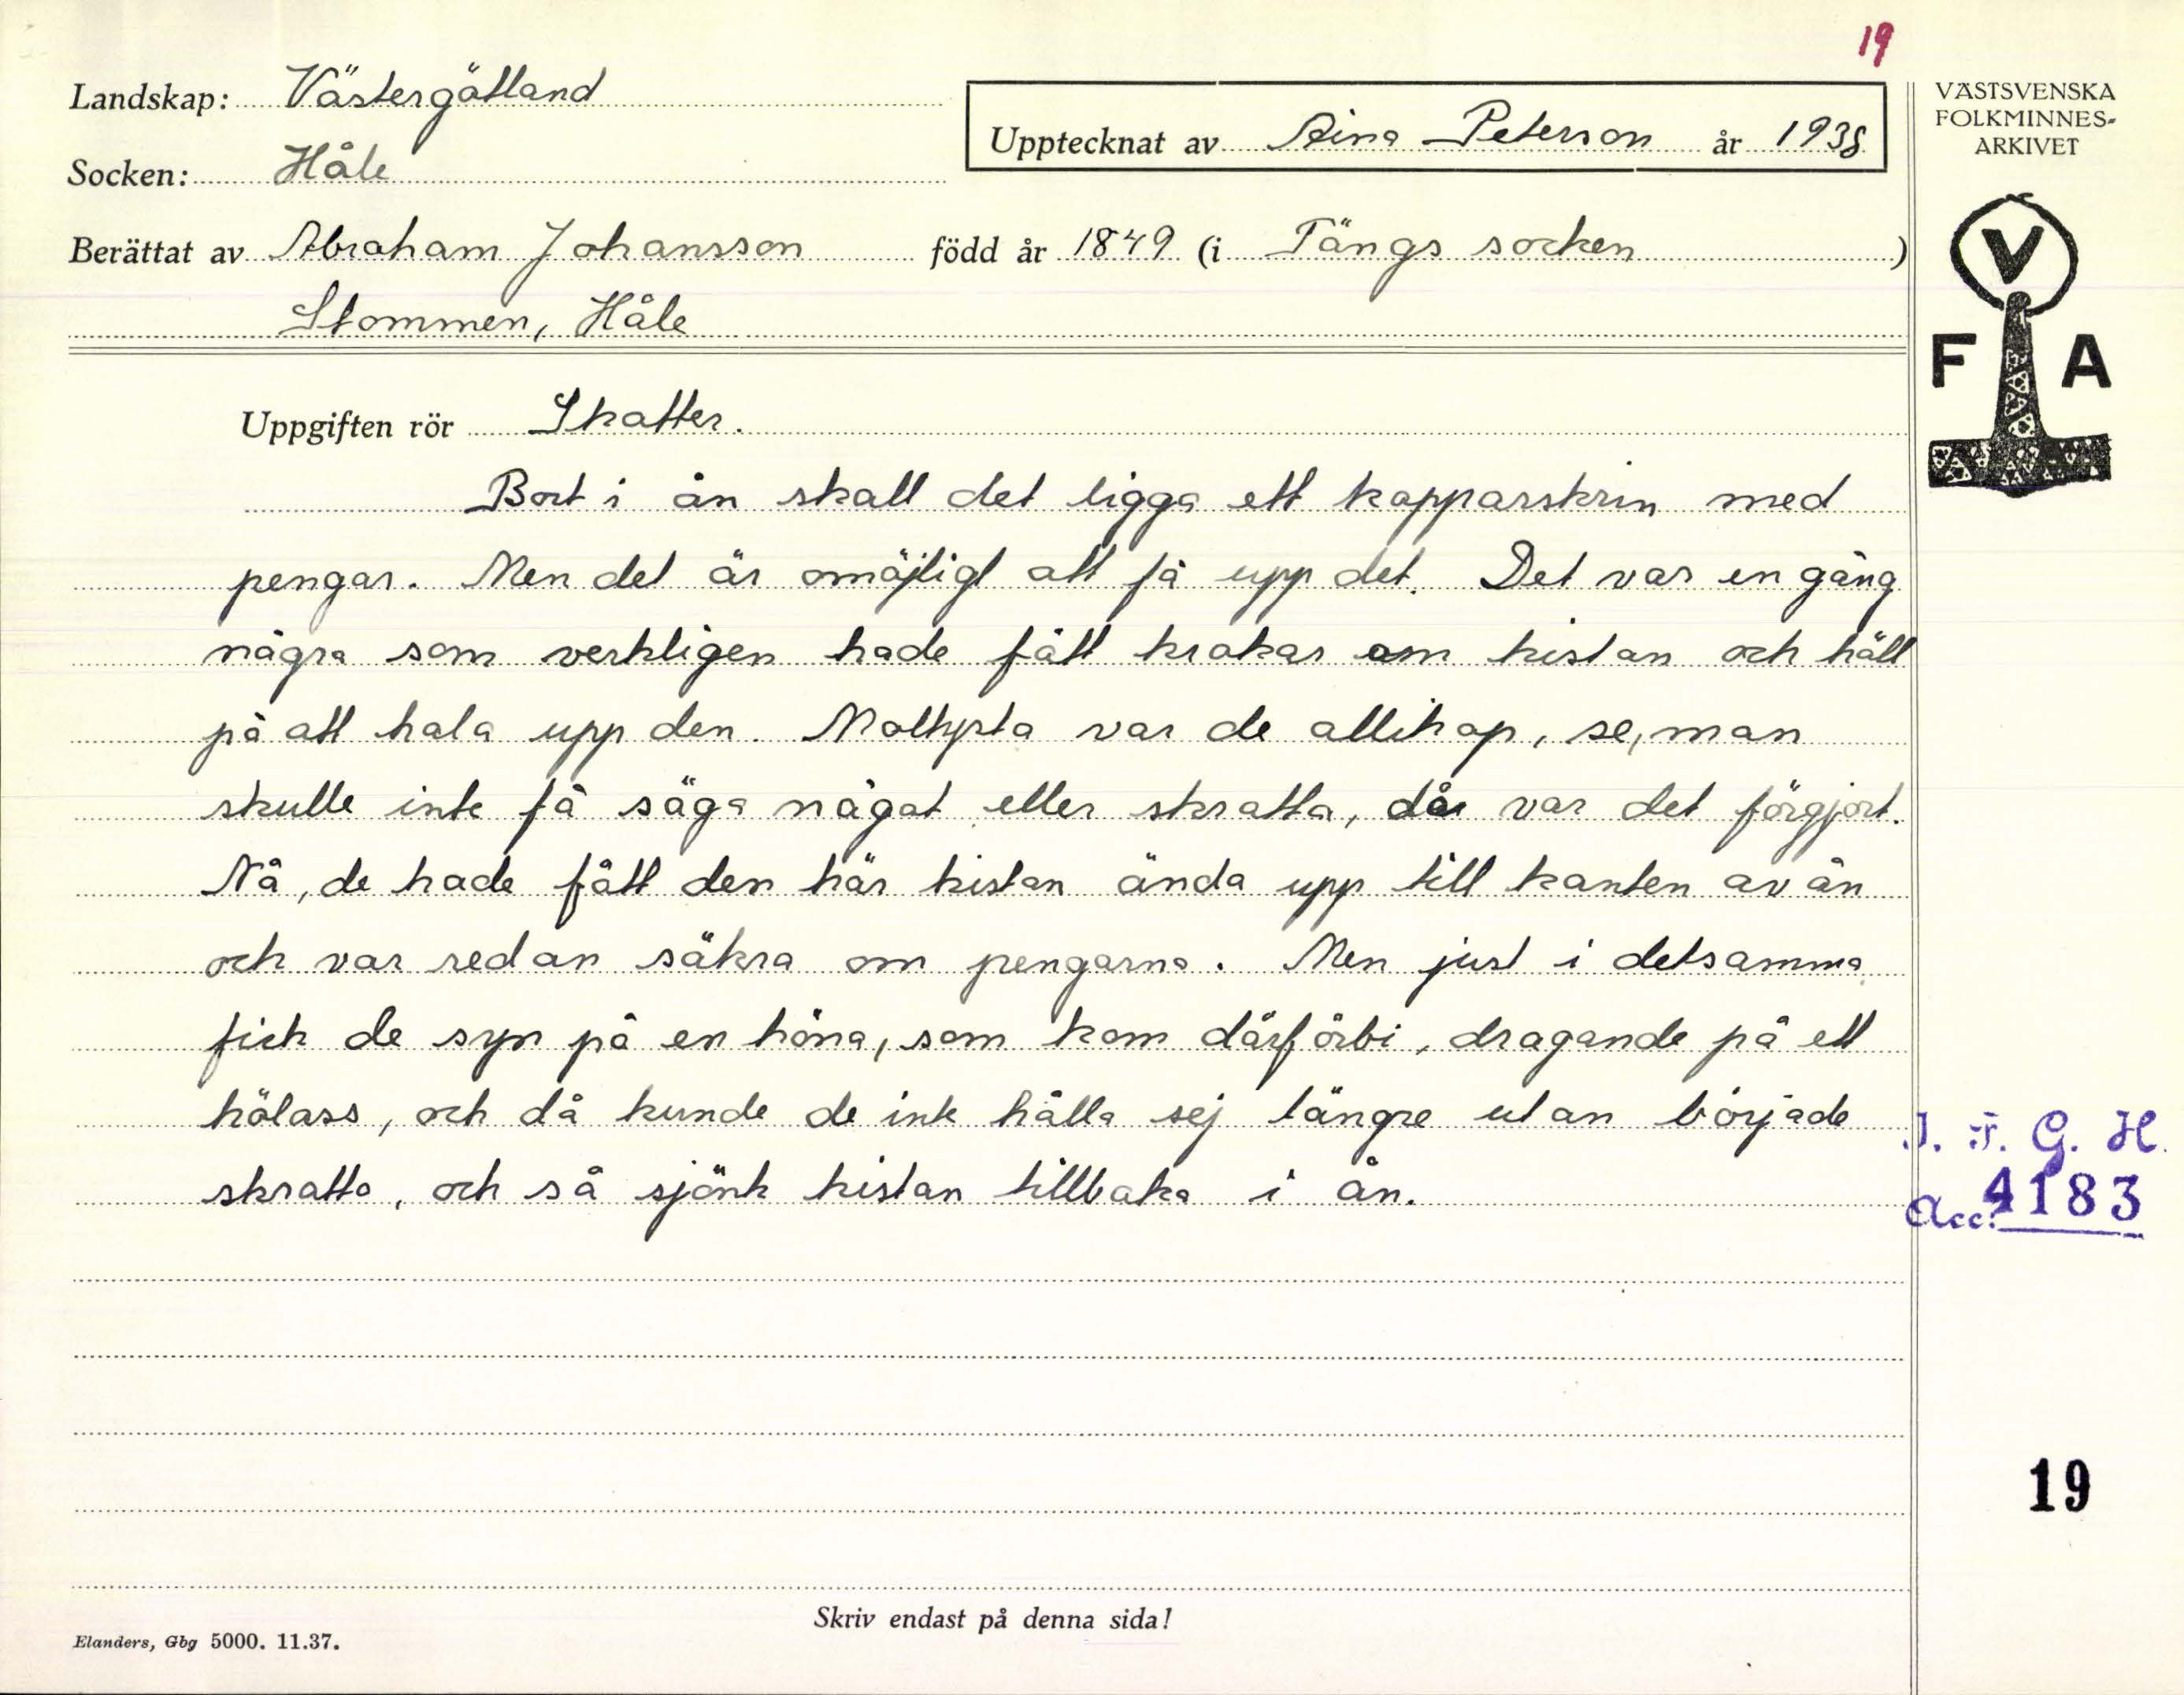 19
Landskap: Västergötland
Upptecknat av Aina Peterson år 1938
VÄSTSVENSKA
FOLKMINNES-
ARKIVET
Socken: Håle
Berättat av Abraham Johansson född år 1849 (i Tängs socken)
Stommen, Håle
V
F A
Uppgiften rör Skatter.
Bort i ån skall det ligga ett kopparskrin med
pengar. Men det är omöjligt att få upp det. Det var en gång
några som verkligen hade fått krokar om kistan och höll
på att hala upp den. Moltysta var de allihop, se, man
skulle inte få säga något eller skratta, då var det förgjort.
Nå, de hade fått den här kistan ända upp till kanten av ån
och var redan säkra om pengarna. Men just i detsamma
fick de syn på en höna, som kom därförbi, dragande på ett
hölass, och då kunde de inte hålla sej längre utan började
skratta, och så sjönk kistan tillbaka i ån.
I. F. G. H.
Acc. 4183
19
Skriv endast på denna sida!
Elanders, Gbg 5000. 11.37.